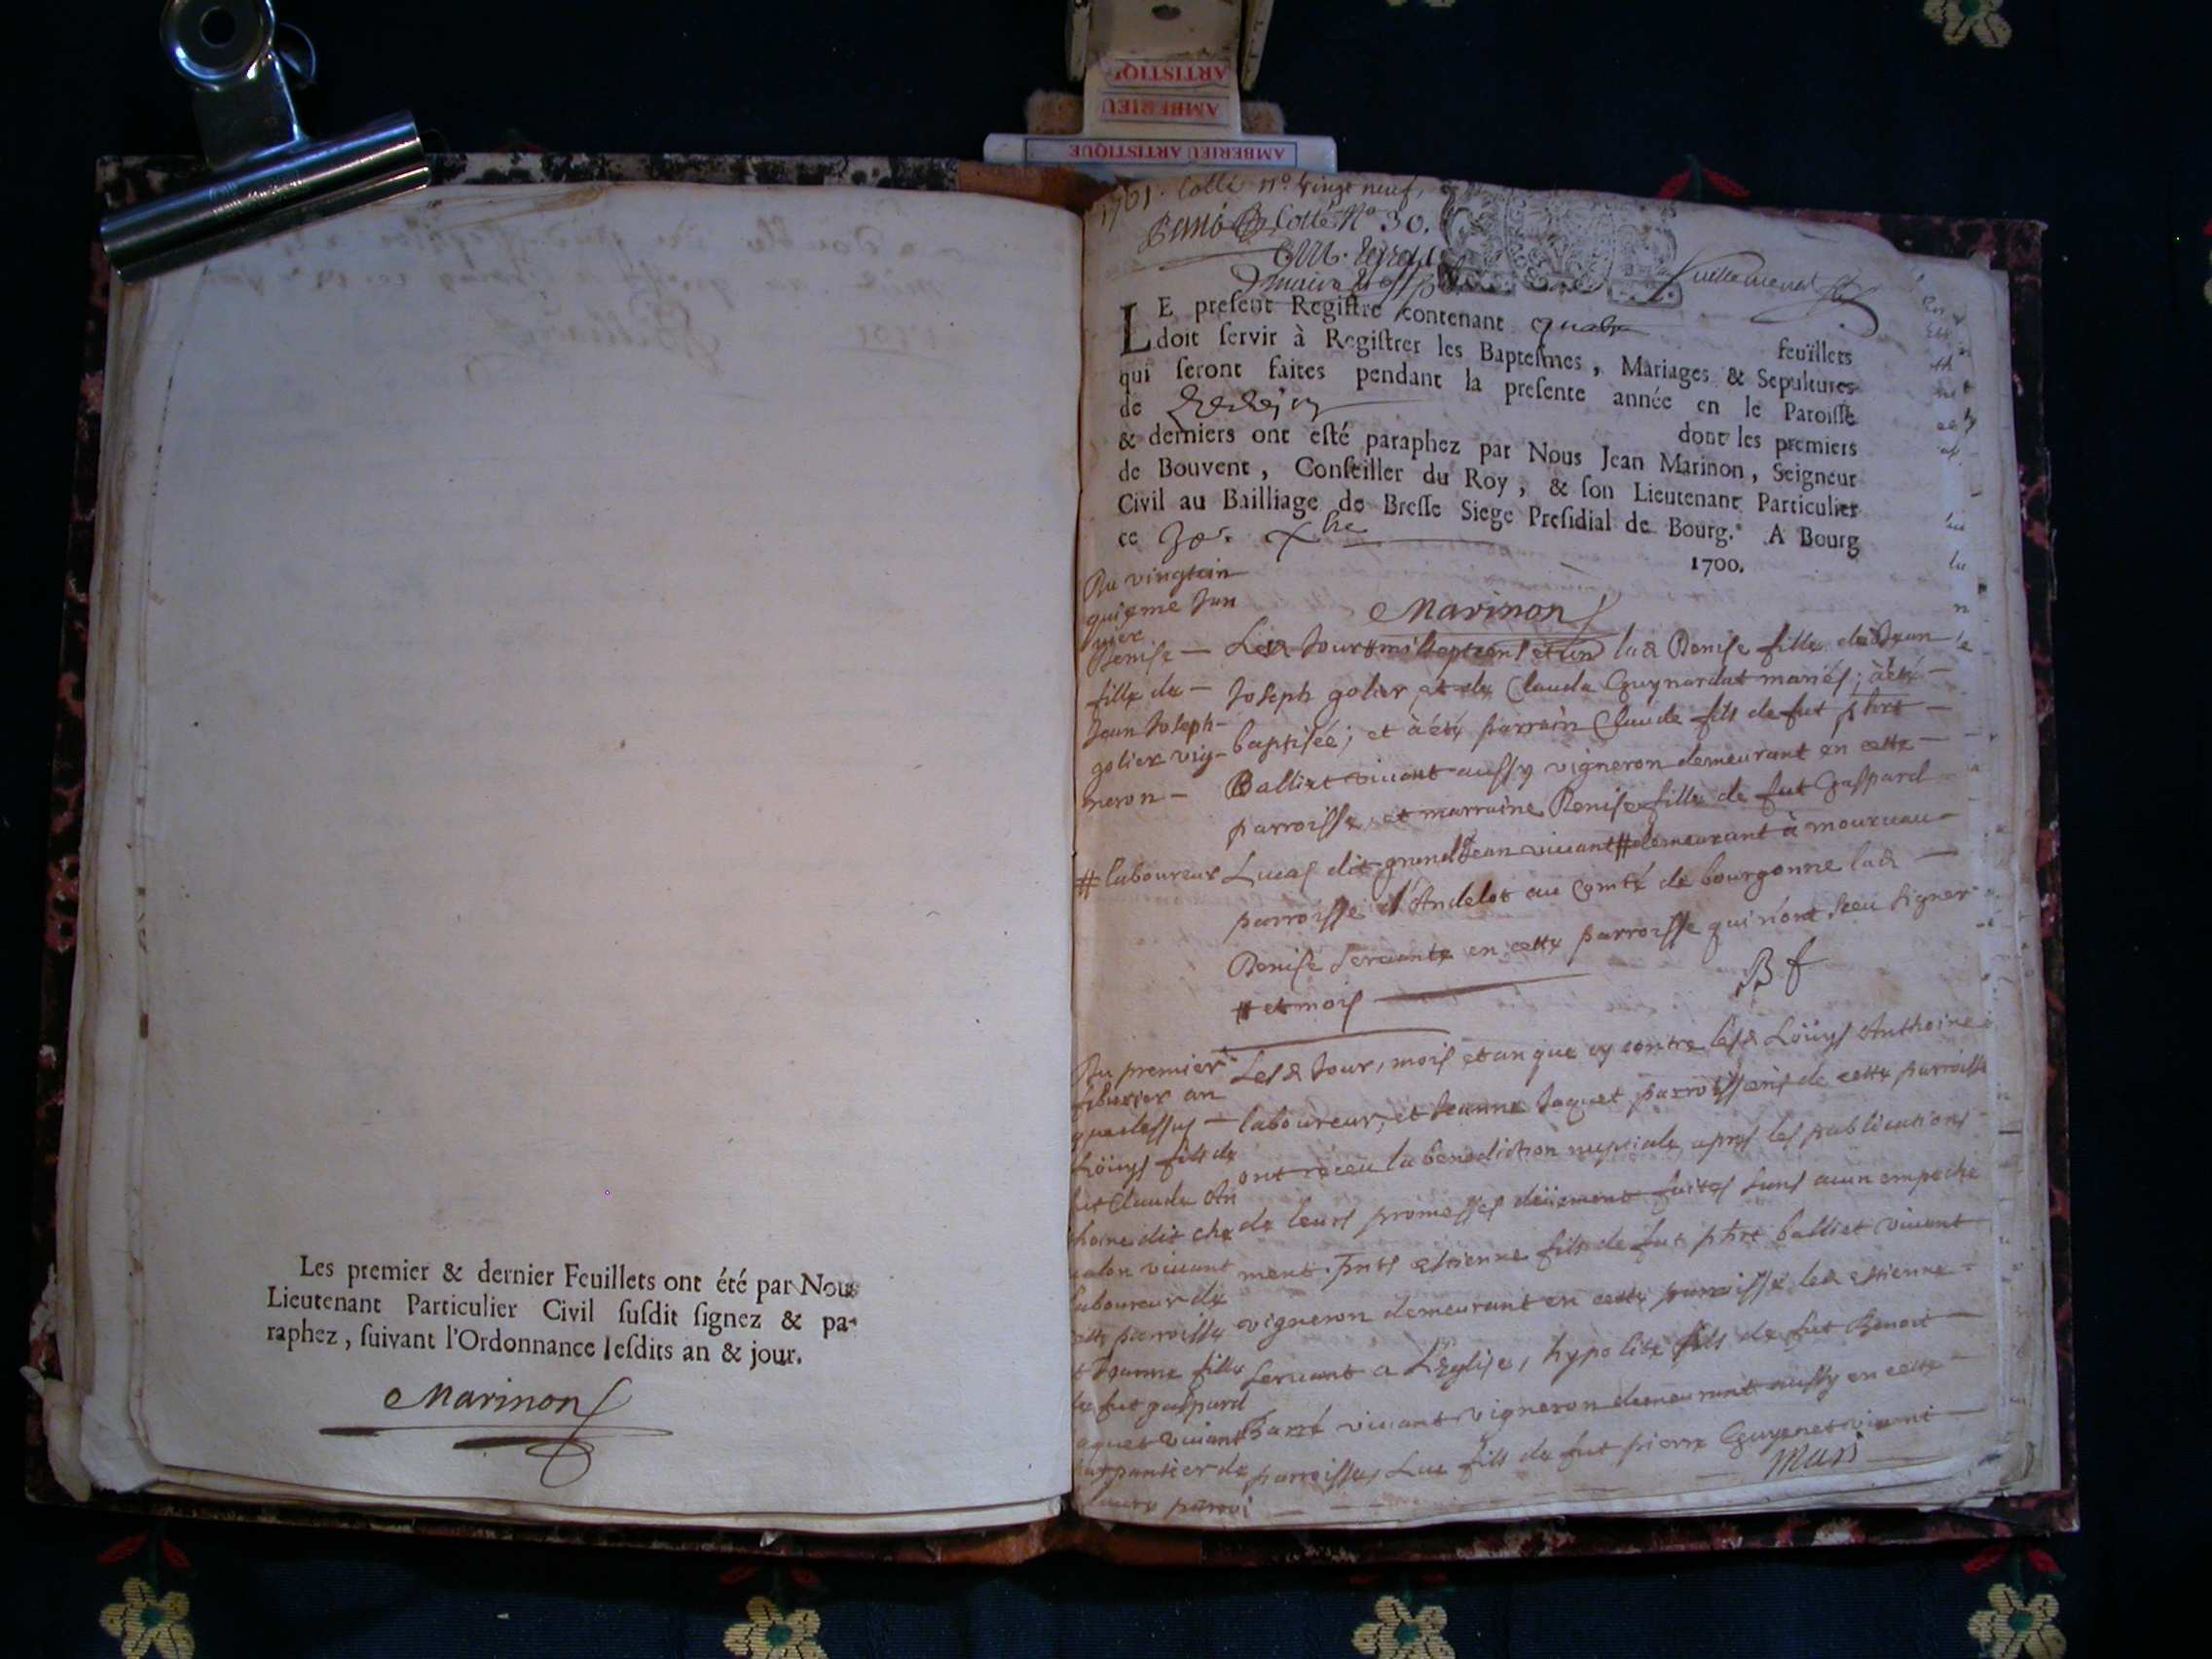 ARTISTIQ
AMBERIEU
AMBERIEU ARTISTIQUE
Les premier & dernier Feuillets ont été par Nous
Lieutenant Particulier Civil ſuſdit ſignez & pa-
raphez, ſuivant l'Ordonnance leſdits an & jour.
Marinon
1701. Cotté n° vingt neuf,
Cotté N° 30.
LE preſent Regiſtre contenant quatre feuïllets
doit ſervir à Regiſtrer les Bapteſmes, Mariages & Sepultures
qui ſeront faites pendant la preſente année en le Paroiſſe
de dont les premiers
& derniers ont eſté paraphez par Nous Jean Marinon, Seigneur
de Bouvent, Conſeiller du Roy, & ſon Lieutenant Particulier
Civil au Bailliage de Breſſe Siege Preſidial de Bourg. A Bourg
ce 1700.
Marinon
Du vingtcin
quieme Jan
vier
Denise —
fille de —
Jean Joseph —
golier vig-
neron —
# laboureur
Lesd Jour # mil sept cent et un lad Denise fille de Jean
Joseph golier, et de Clauda Guynardat mariés; à été —
baptisée; et à été parrain Claude fils de fut phrt —
Balliet vivant aussy vigneron demeurant en cette —
parroisse, et marraine Denise fille de fut Gaspard
Lucas dit grand Jean vivant # demeurant à mouruau —
parroisse d'Andelot au Comté de bourgonne lad —
Denise servante en cette parroisse qui n'ont sceu signer
# et mois
Du premier
feburier an
que dessus —
Löuys fils de
fut Claude An
thoine dit cha
alon vivant
laboureur de
cette parroisse
et Jeanne fille
de fut gaspard
Jaquet vivant
charpantier de
parroi
Lesd Jour, mois et an que cy contre lesd Löuys Anthoine
laboureur, et Jeanne Jaquet parroissens de cette parroisse
ont receu la benediction nupciale apres les publications
de leurs promesses deüement faites sans aucun empeche
ment. Pnts estienne fils de fut phrt balliet vivant
vigneron demeurant en cette parroisse led estienne —
servant a L'Eglise, hypolite fils de fut Benoit —
Barré vivant vigneron demeurant aussy en cette —
parroisse, Luc fils de fut pierre Guyenet vivant